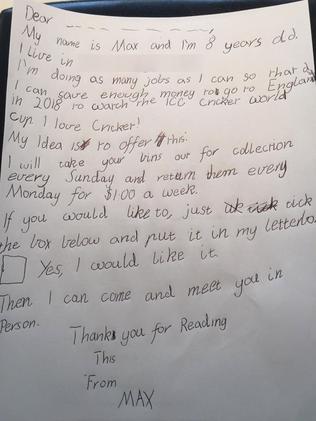 Dear _ _ _ _ _ _ _ _,
My name is Max and I'm 8 years old.
I live in
I'm doing as many jobs as I can so that
I can save enough money to go to England
in 2018 to watch the ICC Cricker world
Cup. I love Cricker!
My Idea is to offer this.
I will take your bins out for collection
every Sunday and return them every
Monday for $1.00 a week.
If you would like to, just tick
the box below and put it in my letterbo
Yes, I would like it.
Then I can come and meet you in
Person.
Thank you for Reading
This
From
MAX